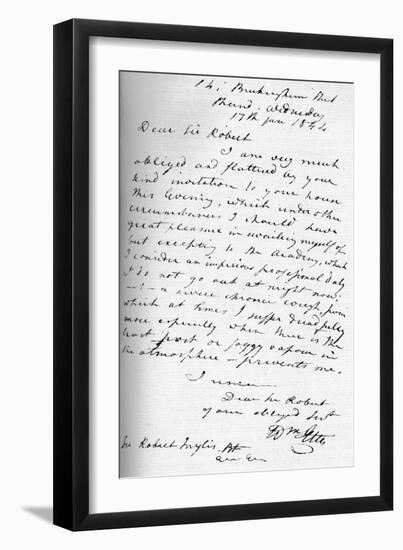 14, Buckingham Street
Strand. Wednesday
17th Jan 1844
Dear Sir Robert
I am very much
obliged and flattered by your
kind invitation to your house
this Evening, which under other
circumstances I should have
great pleasure in availing myself of
but excepting to the Academy, which
I consider an imperious professional duty
I do not go out at night now:
a severe chronic cough from
which at times I suffer dreadfully
more especially when there is the
least frost or foggy vapour in
the atmosphere – prevents me.
I am
Dear Sir Robert
your obliged Servt
Wm Etty
Sir Robert Inglis, Bt